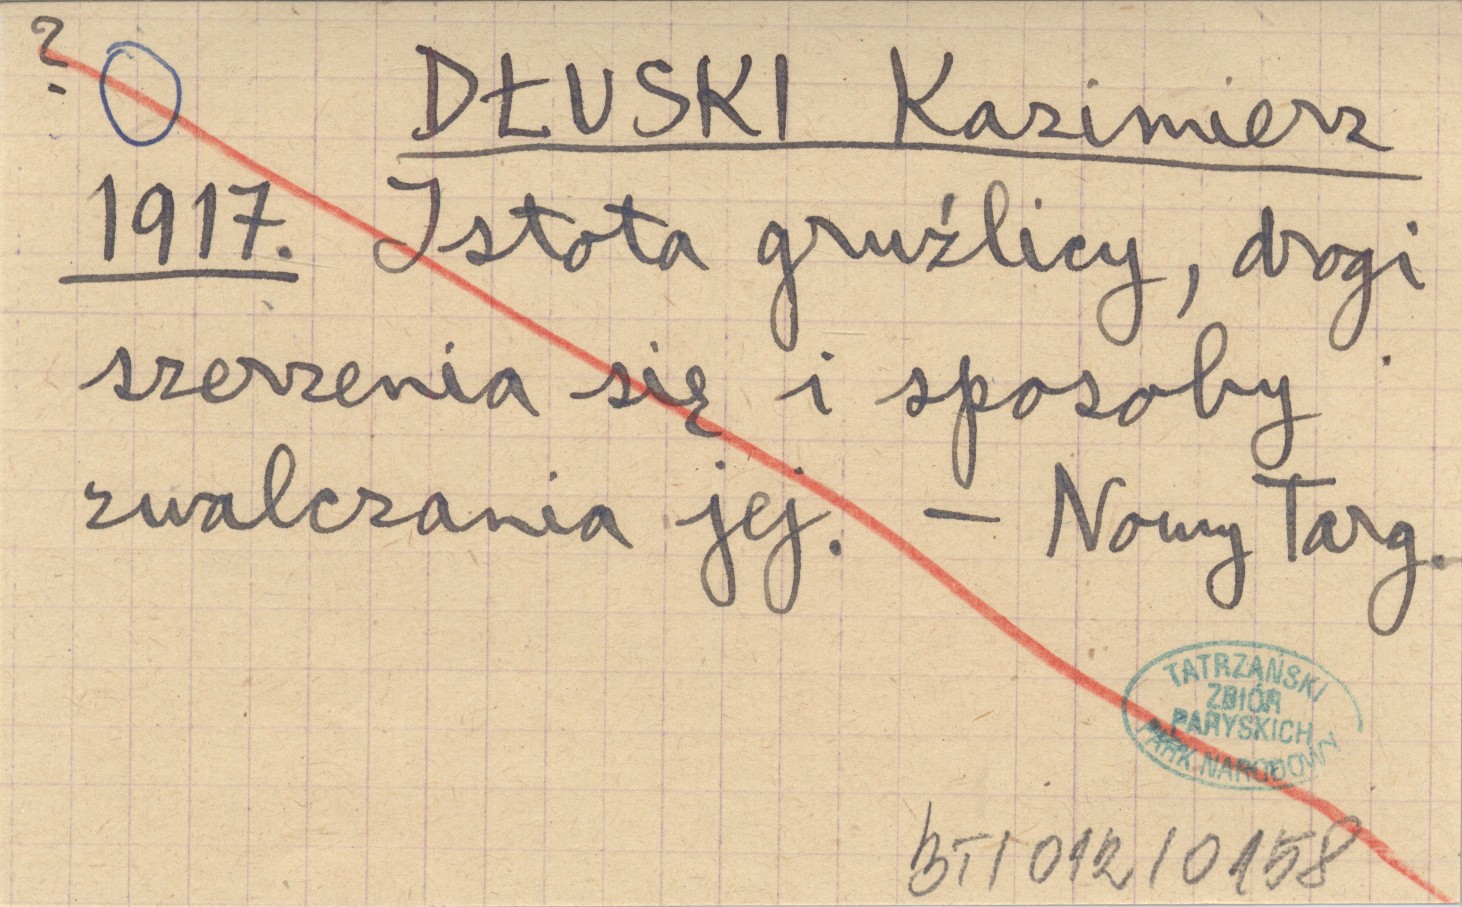 ?
DŁUSKI Kazimierz
1917. Istota gruźlicy, drogi
szerzenia się i sposoby
zwalczania jej. — Nowy Targ.
TATRZAŃSKI
ZBIÓR
PARYSKICH
PARK NARODOWY
BT1 012 / 0158